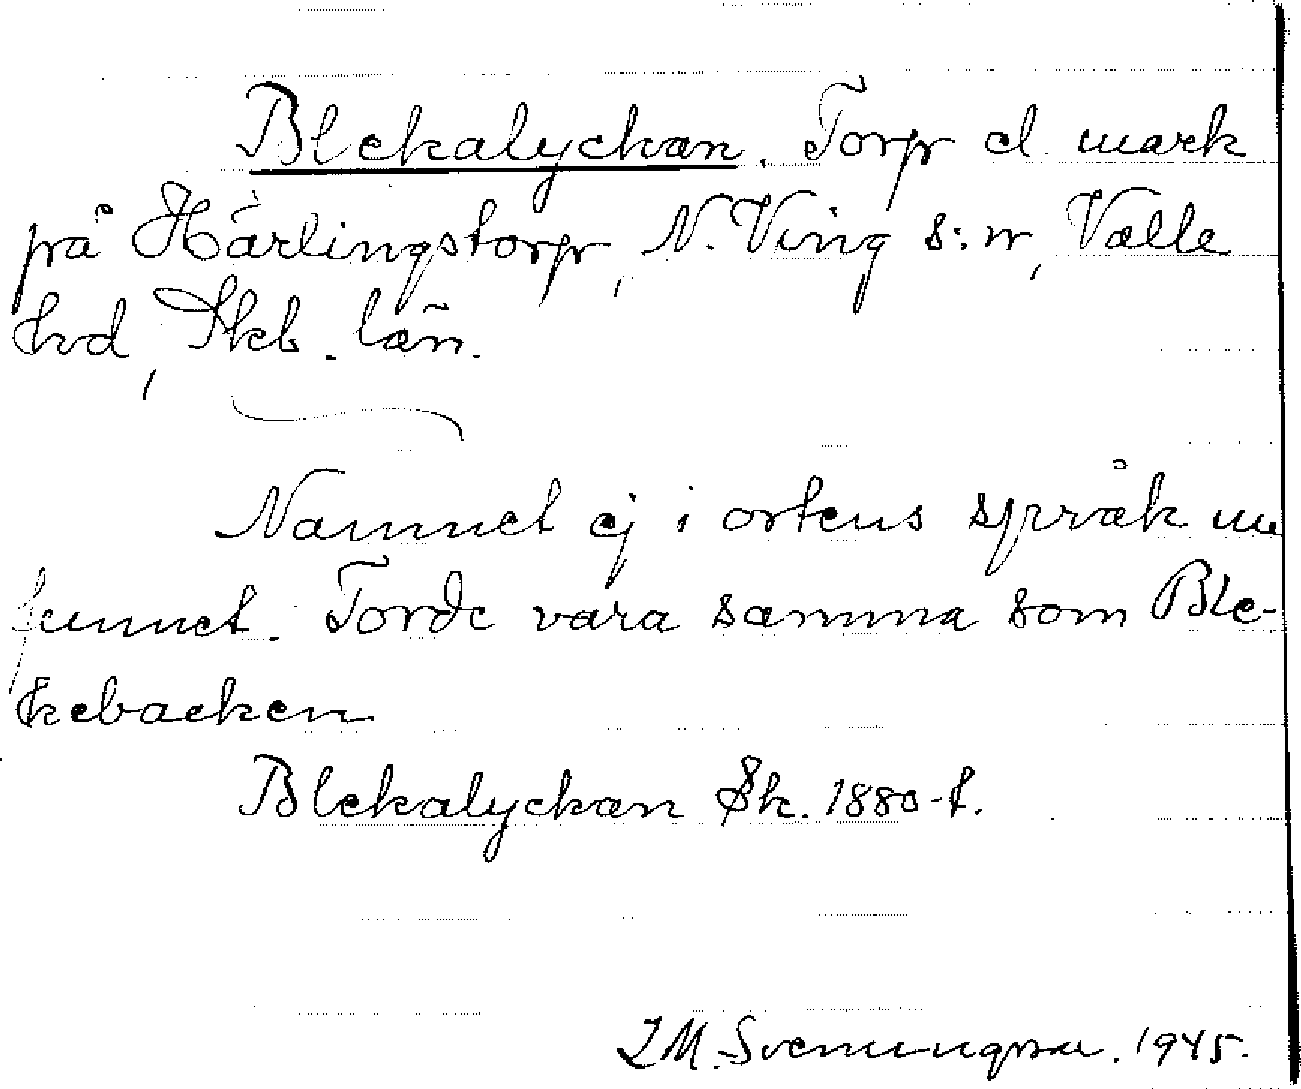 Blekalyckan. Torp el. mark
på Härlingstorp, N. Ving s:n, Valle
hd, Skb. län.
Namnet ej i ortens språk nu
funnet. Torde vara samma som Ble-
kebacken
Blekalyckan Sk. 1880-t.
Svenungsson. 1945.